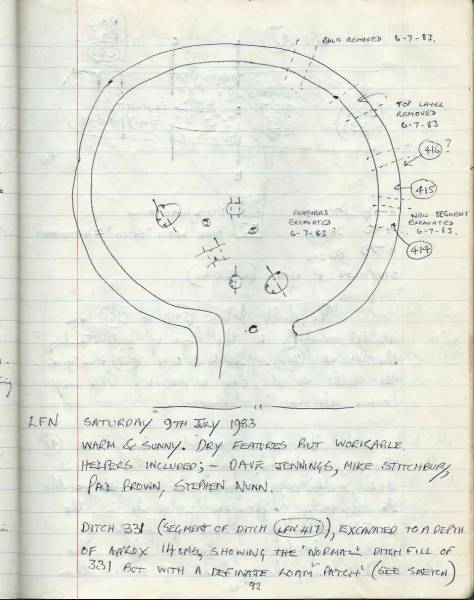 BULK REMOVED 6-7-83.
TOP LAYER
REMOVED
6-7-83
416 ?
415
FEATURES
EXCAVATED
6-7-83
NEW SEGMENT
EXCAVATED
6-7-83.
414
LFN SATURDAY 9TH JULY 1983
WARM & SUNNY. DRY FEATURES BUT WORKABLE.
HELPERS INCLUDED; - DAVE JENNINGS, MIKE STITCHBURY,
PAUL BROWN, STEPHEN NUNN.
DITCH 331 (SEGMENT OF DITCH LFN 417), EXCAVATED TO A DEPTH
OF APPROX 14 CMS, SHOWING THE 'NORMAL' DITCH FILL OF
331 BUT WITH A DEFINATE LOAM "PATCH" (SEE SKETCH)
92